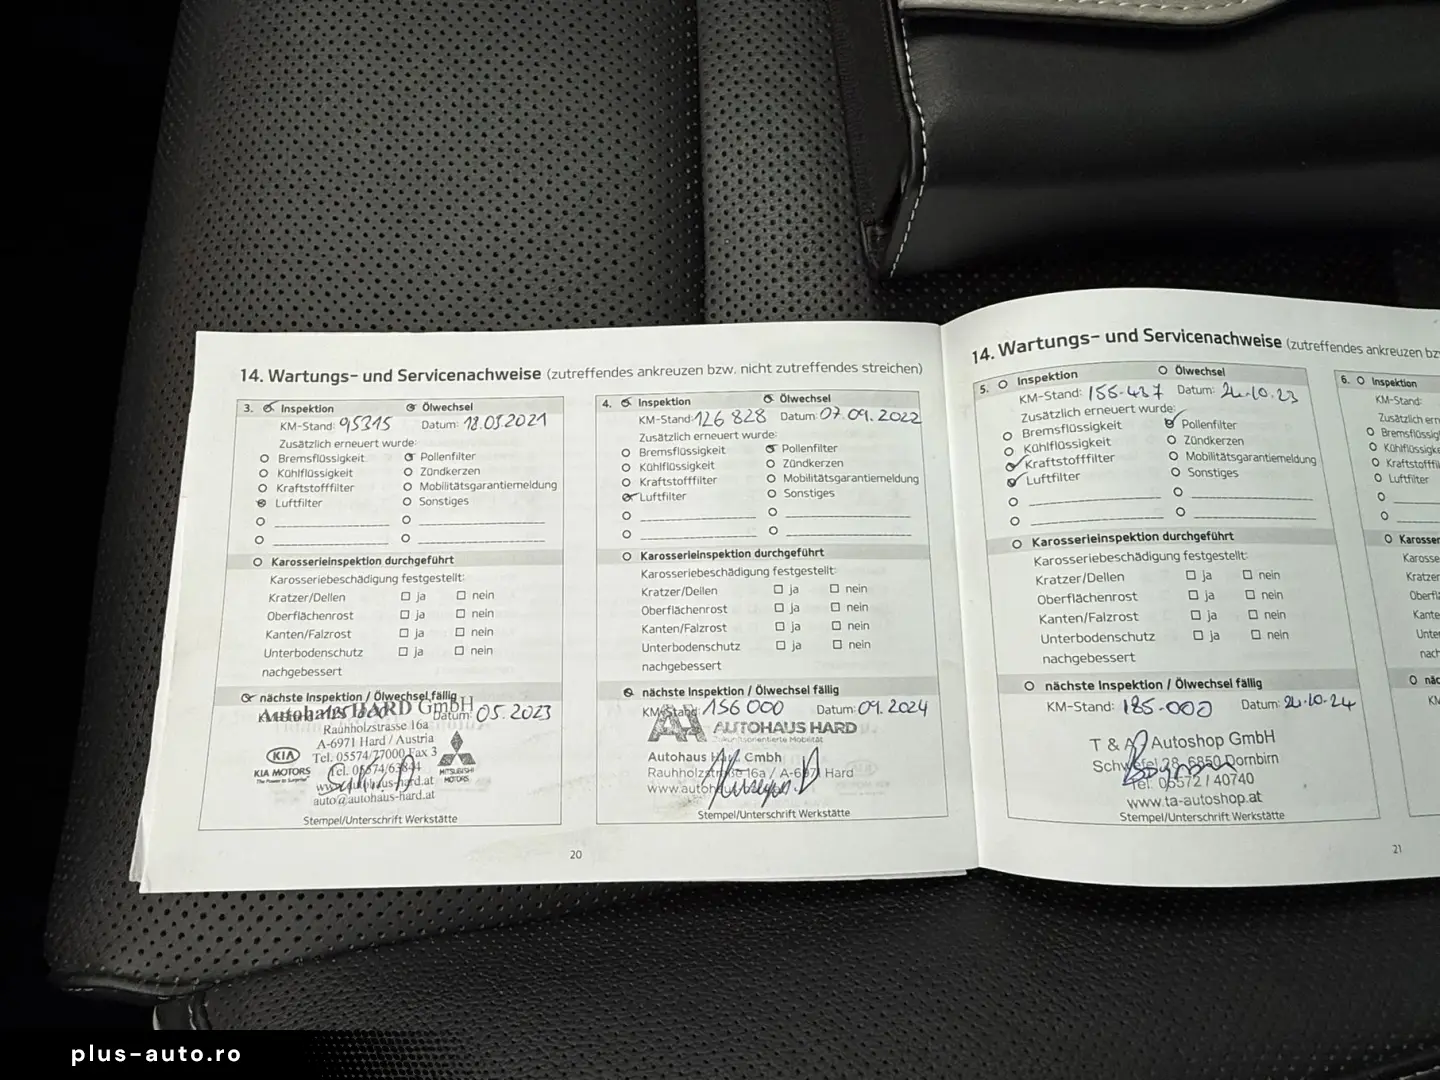 14. Wartungs- und Servicenachweise (zutreffendes ankreuzen bzw. nicht zutreffendes streichen)
3. Inspektion Ölwechsel
KM-Stand: 95315 Datum: 18.05.2021
Zusätzlich erneuert wurde:
Bremsflüssigkeit Pollenfilter
Kühlflüssigkeit Zündkerzen
Kraftstofffilter Mobilitätsgarantiemeldung
Luftfilter Sonstiges
Karosserieinspektion durchgeführt
Karosseriebeschädigung festgestellt:
Kratzer/Dellen ja nein
Oberflächenrost ja nein
Kanten/Falzrost ja nein
Unterbodenschutz ja nein
nachgebessert
nächste Inspektion / Ölwechsel fällig
Autohaus HARD GmbH
Datum: 05.2023
Rauhholzstrasse 16a
A-6971 Hard / Austria
KIA Tel. 05574/77000 Fax 3
KIA MOTORS Tel. 05574/63844 MITSUBISHI MOTORS
www.autohaus-hard.at
auto@autohaus-hard.at
Stempel/Unterschrift Werkstätte
20
4. Inspektion Ölwechsel
KM-Stand: 126 828 Datum: 07.09.2022
Zusätzlich erneuert wurde:
Bremsflüssigkeit Pollenfilter
Kühlflüssigkeit Zündkerzen
Kraftstofffilter Mobilitätsgarantiemeldung
Luftfilter Sonstiges
Karosserieinspektion durchgeführt
Karosseriebeschädigung festgestellt:
Kratzer/Dellen ja nein
Oberflächenrost ja nein
Kanten/Falzrost ja nein
Unterbodenschutz ja nein
nachgebessert
nächste Inspektion / Ölwechsel fällig
KM-Stand: 156 000 Datum: 09.2024
AH AUTOHAUS HARD
Zukunftsorientierte Mobilität
Autohaus Hard Gmbh
Rauhholzstraße 16a / A-6971 Hard
Stempel/Unterschrift Werkstätte
14. Wartungs- und Servicenachweise (zutreffendes ankreuzen bz
5. Inspektion Ölwechsel
KM-Stand: 155.437 Datum: 24.10.23
Zusätzlich erneuert wurde:
Bremsflüssigkeit Pollenfilter
Kühlflüssigkeit Zündkerzen
Kraftstofffilter Mobilitätsgarantiemeldung
Luftfilter Sonstiges
Karosserieinspektion durchgeführt
Karosseriebeschädigung festgestellt:
Kratzer/Dellen ja nein
Oberflächenrost ja nein
Kanten/Falzrost ja nein
Unterbodenschutz ja nein
nachgebessert
nächste Inspektion / Ölwechsel fällig
KM-Stand: 185.000 Datum: 24.10.24
T & A Autoshop GmbH
Schwefel 28, 6850 Dornbirn
Tel. 05572 / 40740
www.ta-autoshop.at
Stempel/Unterschrift Werkstätte
21
6. Inspektion
KM-Stand:
Zusätzlich ern
Bremsflüssig
Kühlflüssigke
Kraftstofffil
Luftfilter
Karosser
Karosse
Kratzer
Oberflä
Kante
Unter
nach
näc
KM
plus-auto.ro